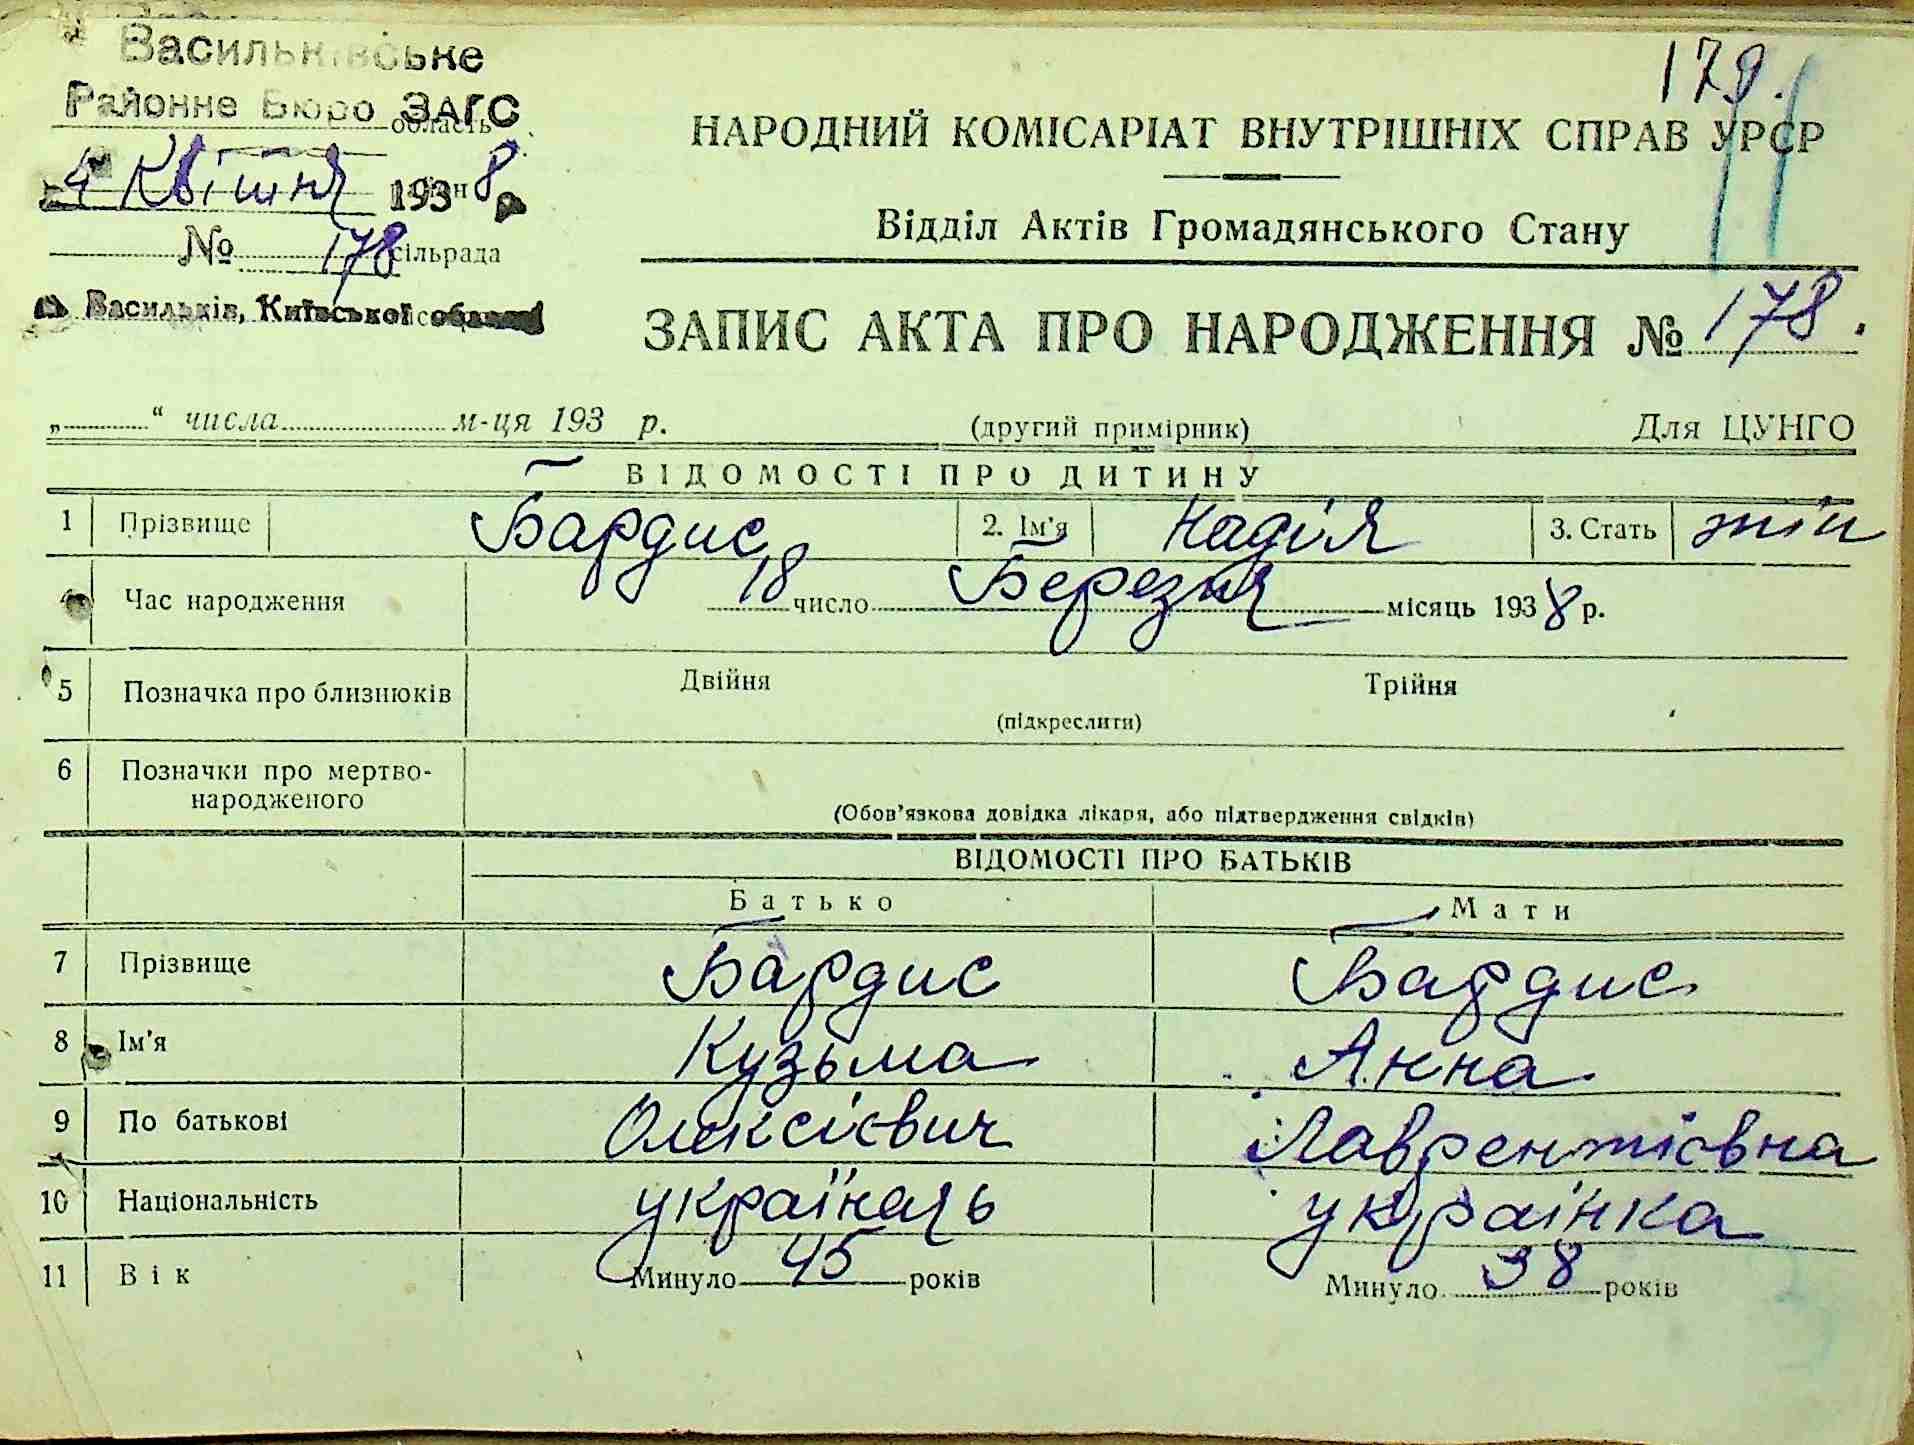 179.
Васильківське
Районне Бюро ЗАГС
область
4 Квітня 1938 р
№ 178 сільрада
м. Васильків, Київської області
НАРОДНИЙ КОМІСАРІАТ ВНУТРІШНІХ СПРАВ УРСР
Відділ Актів Громадянського Стану
ЗАПИС АКТА ПРО НАРОДЖЕННЯ № 178.
„ “ числа м-ця 193 р. (другий примірник) Для ЦУНГО
ВІДОМОСТІ ПРО ДИТИНУ
1 Прізвище Бардис 2. Ім'я Надія 3. Стать жін
4 Час народження 18 число Березня місяць 1938 р.
5 Позначка про близнюків Двійня Трійня
(підкреслити)
6 Позначки про мертво-
народженого
(Обов'язкова довідка лікаря, або підтвердження свідків)
ВІДОМОСТІ ПРО БАТЬКІВ
Батько Мати
7 Прізвище Бардис Бардис
8 Ім'я Кузьма Анна
9 По батькові Олексієвич Лаврентієвна
10 Національність українець українка
11 Вік Минуло 45 років Минуло 38 років